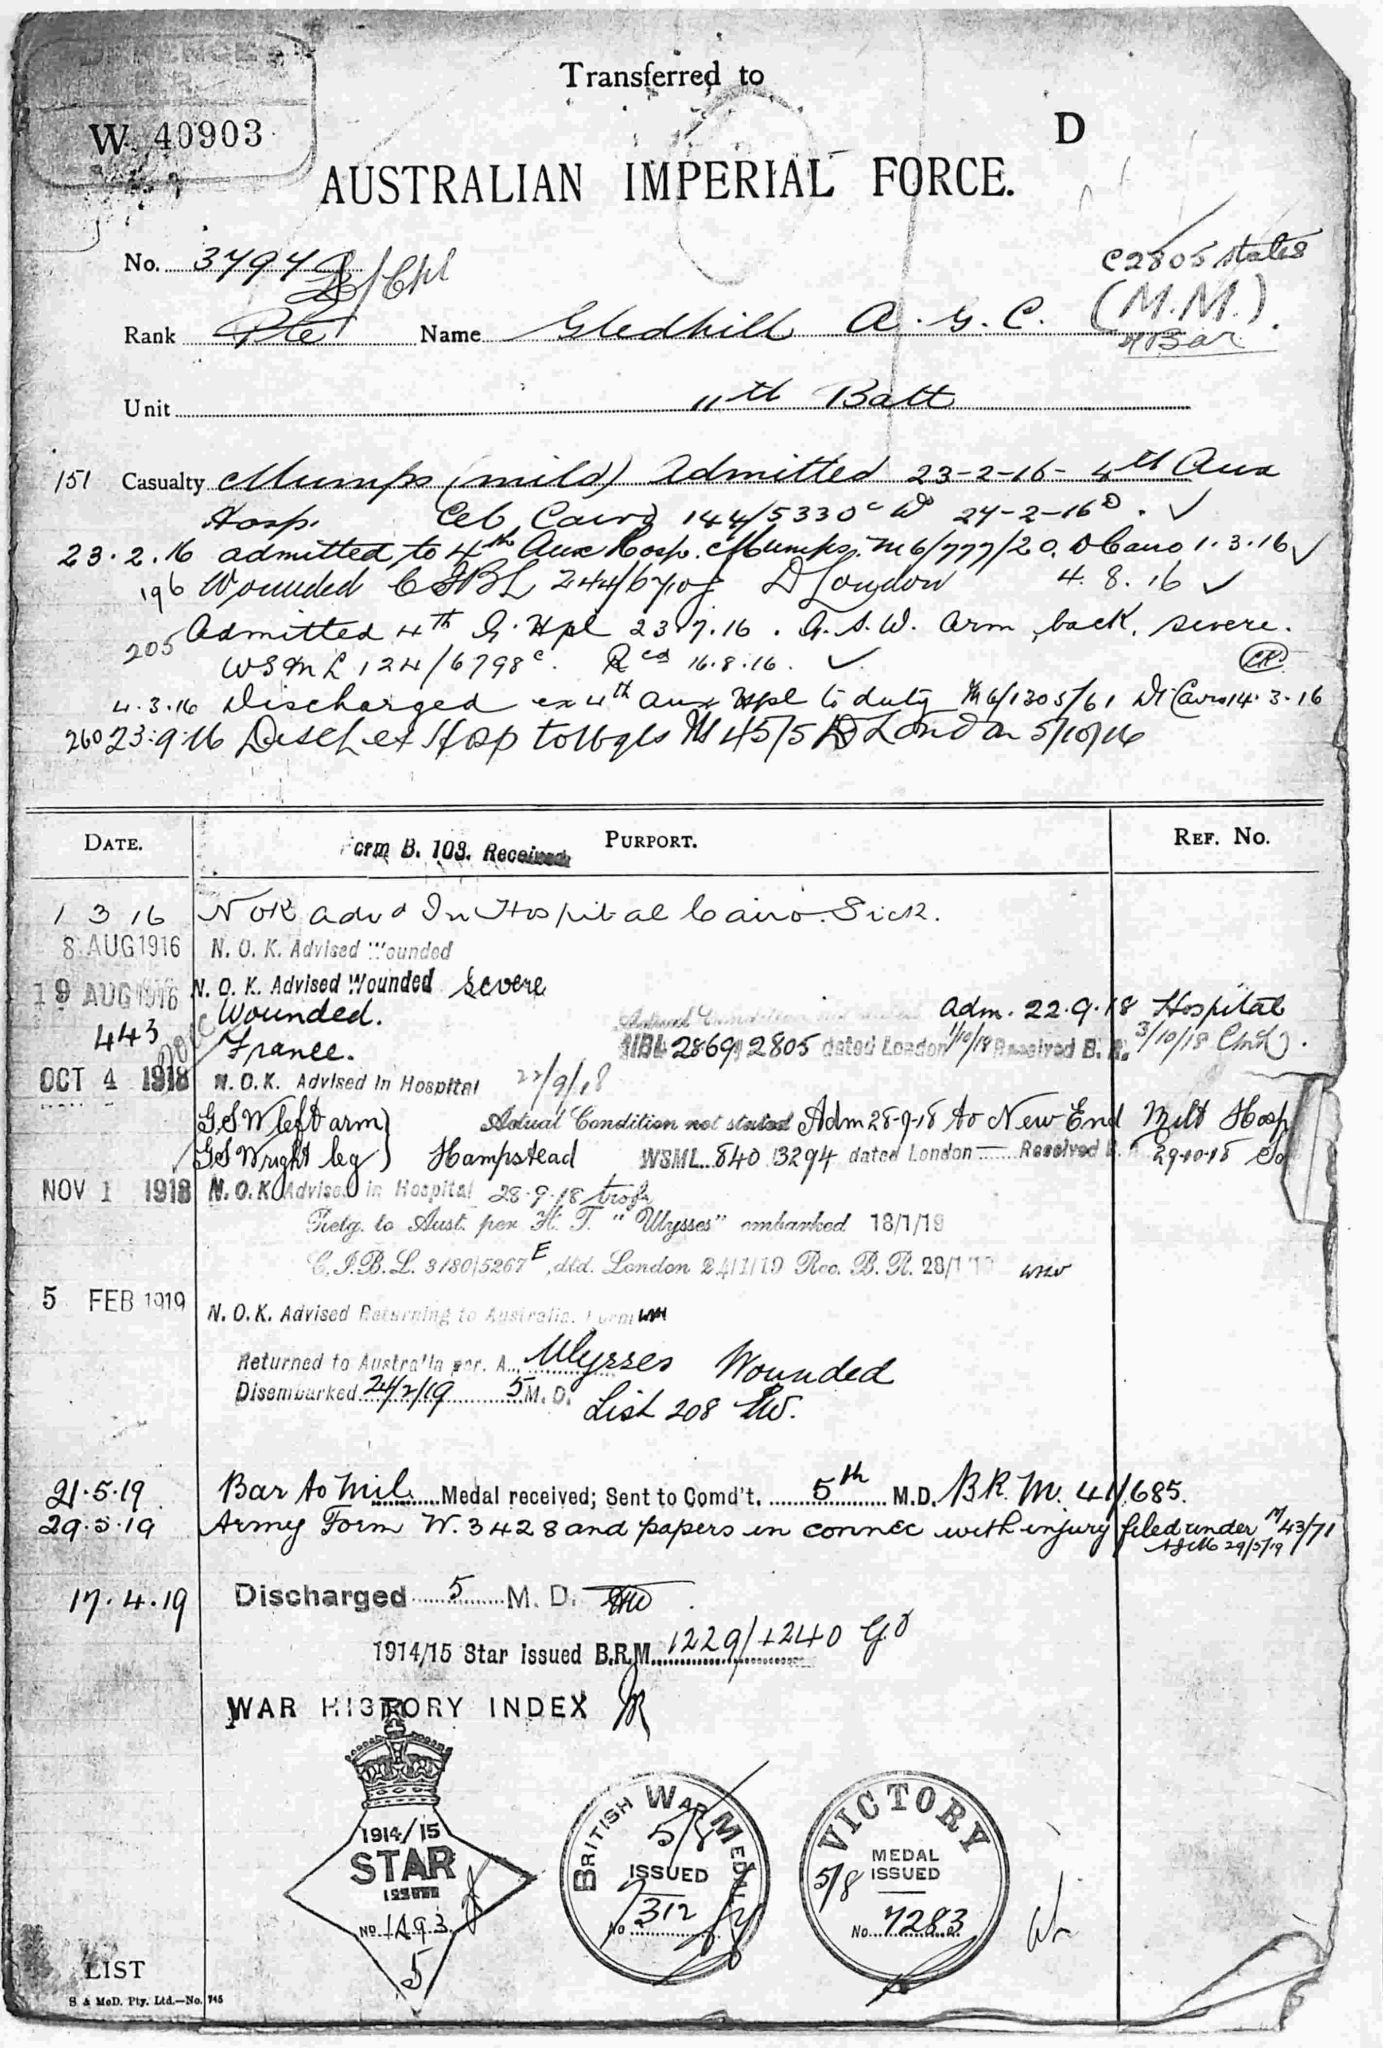 W. 40903
Transferred to
D
AUSTRALIAN IMPERIAL FORCE.
No. 3794 L/Cpl
C2805 states
Rank Pte Name Gledhill A. G. C. (M.M.)
& Bar
Unit 11th Batt
151 Casualty Mumps (mild) Admitted 23-2-16- 4th Aux
Hosp. Cairo 144/5330 24-2-16
23.2.16 admitted to 4th Aux Hosp. Mumps. M6/777/20. D Cairo 1.3.16
196 Wounded D London 4.8.16
205 Admitted 4th G. Hpl 23.7.16. G.S.W. arm, back, severe.
WSML 124/6798c. Rcd 16.8.16.
4.3.16 Discharged ex 4th Aux Hpl to duty M6/1305/61 Dt Cairo 14.3.16
260 23.9.16 Disch ex Hosp to 45/5 D London 5/10/16
DATE. Form B. 103. Received PURPORT. REF. No.
1 3 16 NOK advd In Hospital Cairo. Sick.
8 AUG 1916 N. O. K. Advised Wounded
19 AUG 1916 N. O. K. Advised Wounded Severe
443 Wounded. Adm. 22.9.18 Hospital
France. 2869 2805 dated London 1/10/18 Received B. R. 3/10/18
OCT 4 1918 N. O. K. Advised in Hospital 22/9/18
GSW left arm) Actual Condition not stated Adm 28-9-18 to New End Milt Hosp
GSW right leg) Hampstead WSML 840 3294 dated London Received B. R. 29-10-18
NOV 1 1918 N. O. K Advised in Hospital 28.9.18 trsfr
Retg. to Aust. per H. T. "Ulysses" embarked 18/1/19
C.I.B.L. 3180/5267 E, dtd. London 24/1/19 Rec. B. R. 28/1/19
5 FEB 1919 N. O. K. Advised Returning to Australia. Form
Returned to Australia per. A... Ulysses Wounded
Disembarked 24/2/19 5 M. D. List 208
21.5.19 Bar to Mil. Medal received; Sent to Comd't. 5th M.D. B.R.M. 41/685.
29.5.19 Army Form W.3428 and papers in connec with injury filed under M/43/71
29/5/19
17.4.19 Discharged 5 M. D.
1914/15 Star issued B.R.M. 1229/1240
WAR HISTORY INDEX
1914/15
STAR
ISSUED
No 1493
5
BRITISH WAR MEDAL
5/8
ISSUED
No 7312
VICTORY
MEDAL
5/8 ISSUED
No. 7283
LIST
S & McD. Pty. Ltd.—No. 745